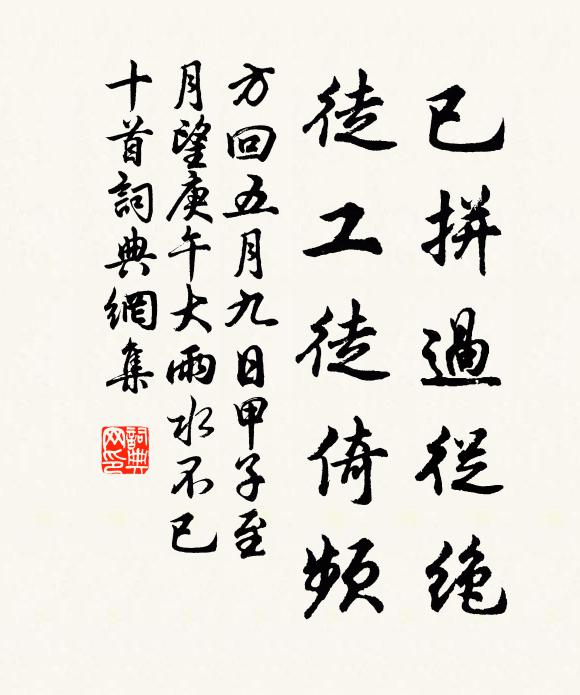 已拼過從絶
徒工徒倚頻
方回五月九日甲子至
月望庚午大雨水不已
十首詞典網集
詞典
网印